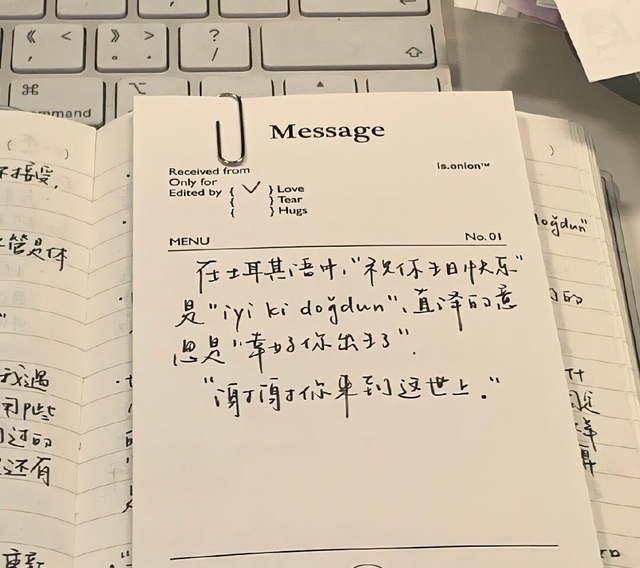 《 <
，
》 >
。 .
?
/
⌘
⌥
mmand
Message
Received from
Only for
Edited by
{ ✓ } Love
{ } Tear
{ } Hugs
Is.onion™
MENU
No.01
在土耳其语中，“祝你生日快乐”
是“iyi ki doğdun”，直译的意
思是“幸好你出生了”.
“谢谢你来到这世上.”
接受,
管是体
我遇
过的
还有
重新
oğdun"
的